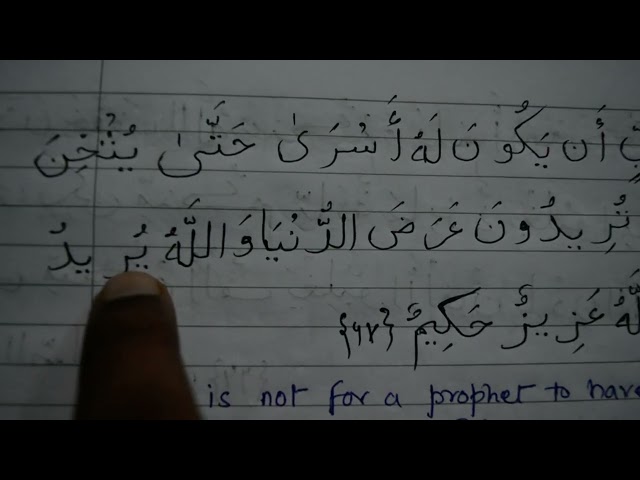 أَن يَكُونَ لَهُ أَسْرَىٰ حَتَّىٰ يُثْخِنَ
تُرِيدُونَ عَرَضَ الدُّنْيَا وَاللَّهُ يُرِيدُ
عَزِيزٌ حَكِيمٌ
is not for a prophet to have